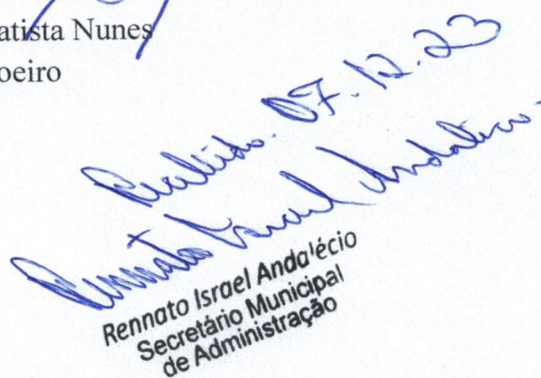 atista Nunes
oeiro
Recebido. 07.12.23
Rennato Israel Andalécio
Rennato Israel Anda'écio
Secretário Municipal
de Administração